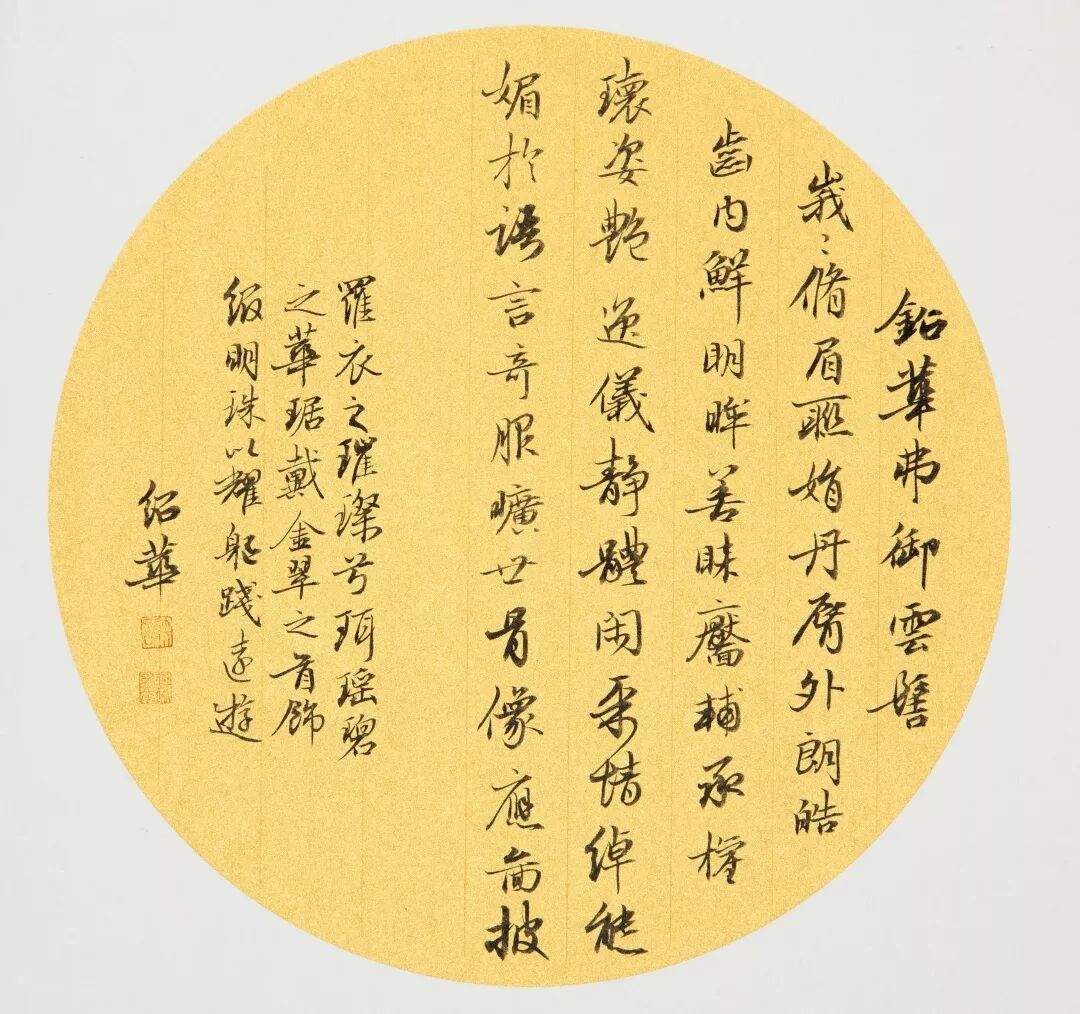 鉛華弗御雲髻
峩〻脩眉聯娟丹脣外朗皓
齒内鮮明眸善睞靨輔承權
瓌姿艷逸儀靜體閑柔情綽態
媚於語言奇服曠世骨像應圖披
羅衣之璀璨兮珥瑤碧
之華琚戴金翠之首飾
綴明珠以耀軀踐遠遊
紹華